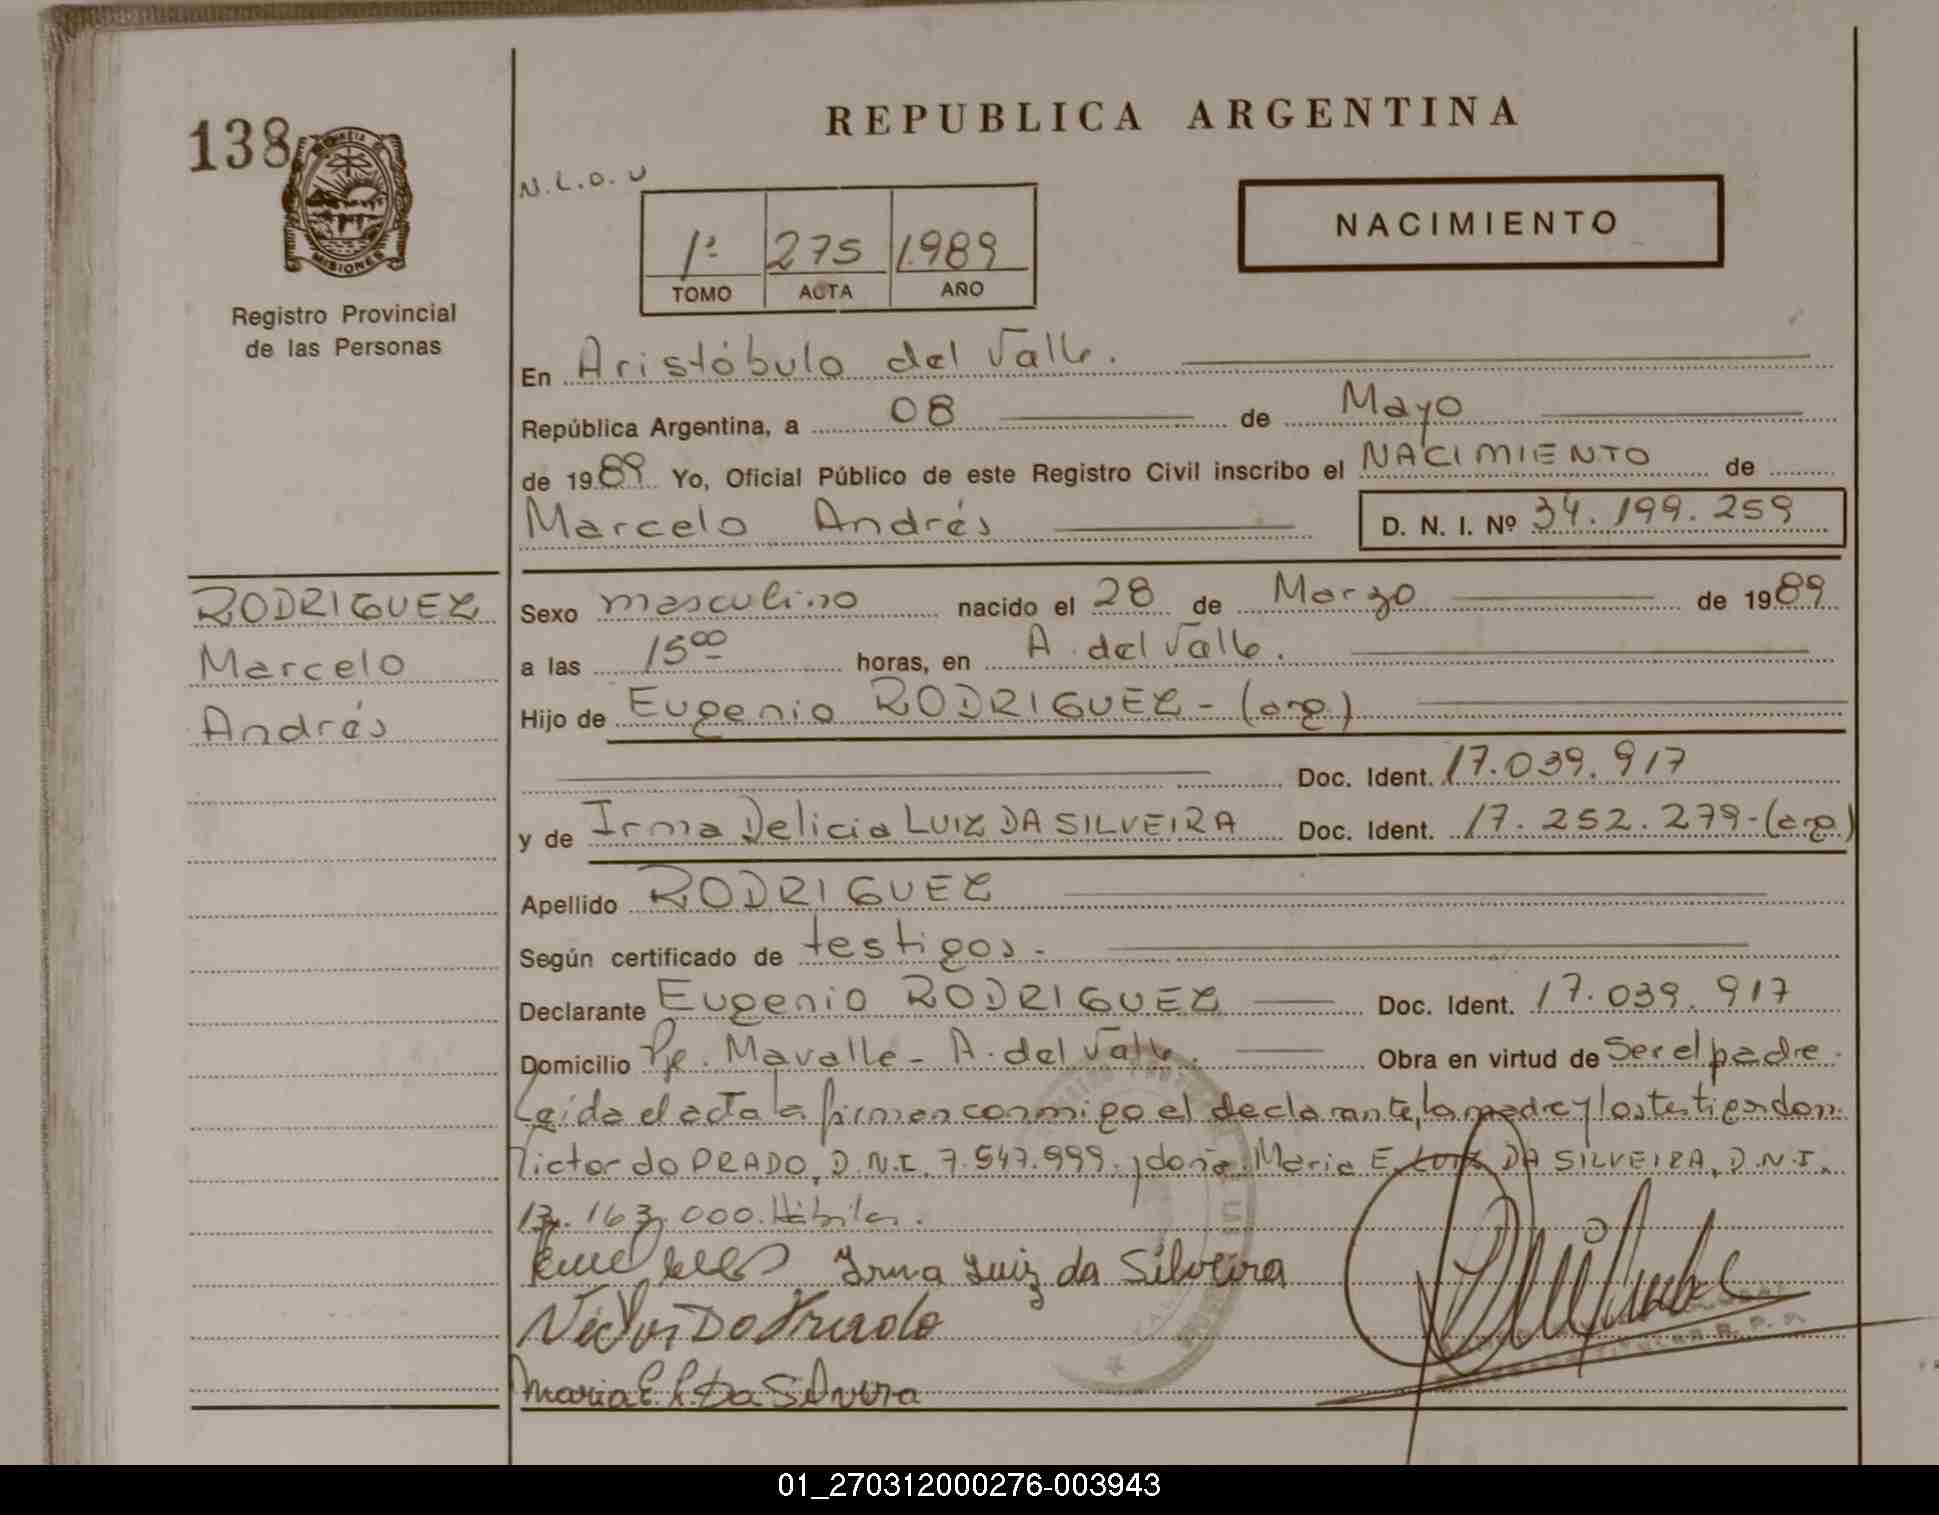 138
MISIONES
Registro Provincial
de las Personas
RODRIGUEZ
Marcelo
Andrés
REPUBLICA ARGENTINA
N.L.O.U
1º 275 1.989
TOMO ACTA AÑO
NACIMIENTO
En Aristóbulo del Valle.
República Argentina, a 08 de Mayo
de 1989 Yo, Oficial Público de este Registro Civil inscribo el NACIMIENTO de
Marcelo Andrés D. N. I. Nº 34.199.259
Sexo masculino nacido el 28 de Marzo de 1989
a las 15 00 horas, en A. del Valle.
Hijo de Eugenio RODRIGUEZ - (arg.)
Doc. Ident. 17.039.917
y de Irma Delicia LUIZ DA SILVEIRA Doc. Ident. 17.252.279-(arg.)
Apellido RODRIGUEZ
Según certificado de testigos.-
Declarante Eugenio RODRIGUEZ Doc. Ident. 17.039.917
Domicilio Pje. Mavalle - A. del Valle. Obra en virtud de Ser el padre.
Leída el acta la firman conmigo el declarante, la madre y los testigos don
Victor do PRADO, D.N.I. 7.547.999. y doña Maria E. LUIZ DA SILVEIRA, D.N.I.
163.000. Hábiles.
Irma Luiz da Silveira
Victor Do Prado
Maria E. L. Da Silveira
01_270312000276-003943